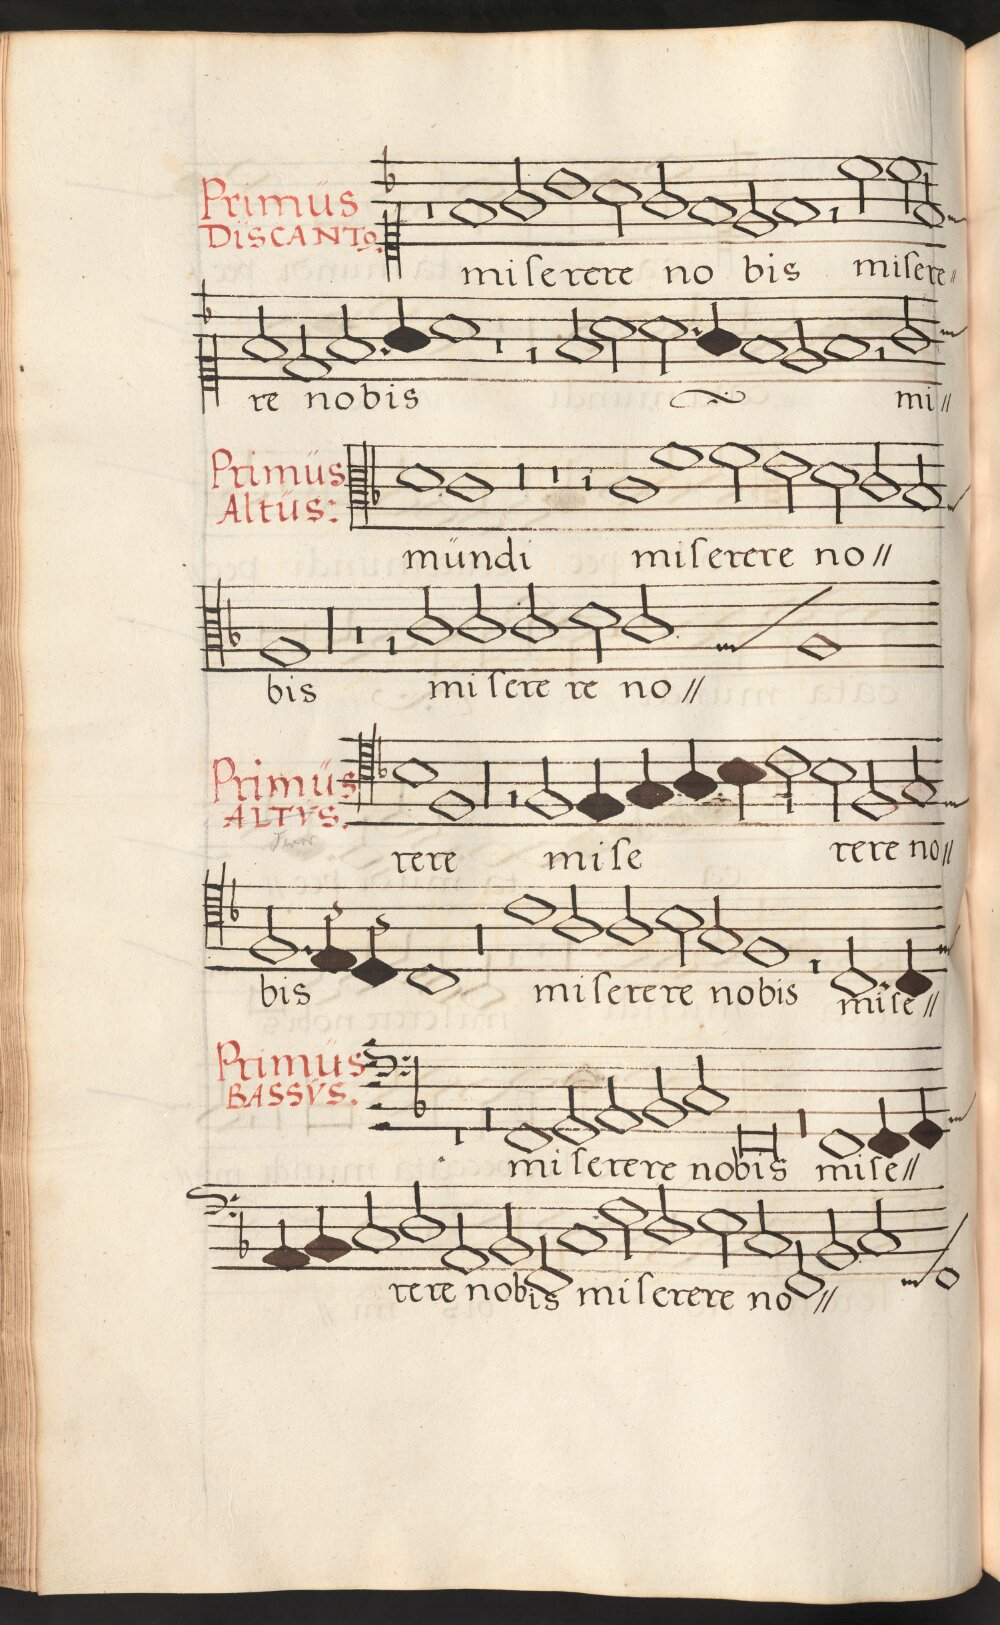 Primüs
DISCANTꝰ.
miserere no bis misere〃
re nobis mi〃
Primüs
Altüs:
mündi miserere no〃
bis miserere no〃
Primüs
ALTVS.
rere mise rere no〃
bis miserere nobis mise〃
Primüs
BASSVS.
miserere nobis mise〃
rere nobis miserere no〃